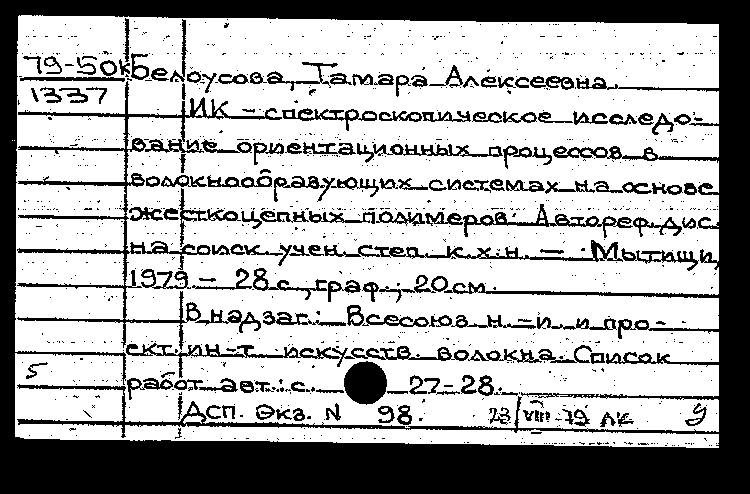 79-50к Белоусова, Тамара Алексеевна.
1337
ИК - спектроскопическое исследо-
вание ориентационных процессов в
волокнообразующих системах на основе
жесткоцепных полимеров: Автореф. дис.
на соиск. учен. степ. к.х.н. — Мытищи,
1979 - 28 с., граф.; 20 см.
В надзаг.: Всесоюз. н.-и. и про-
ект. ин-т искусств. волокна. Список
5 работ авт.: с. 27-28.
ДСП. Экз. N 98. 23/VIII-79 ЛК У